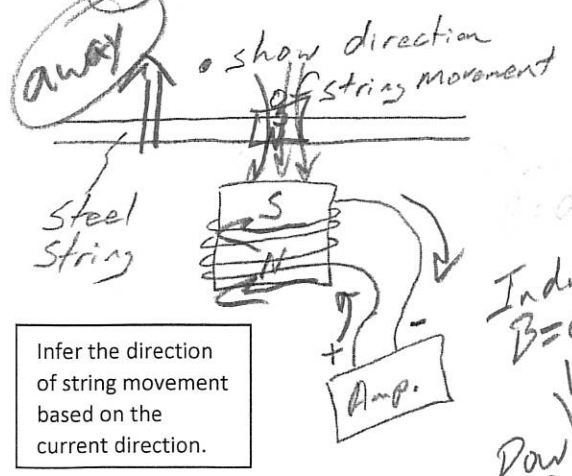 away
• show direction
of string movement
Steel
String
S
N
+
-
Amp.
Infer the direction
of string movement
based on the
current direction.
B=